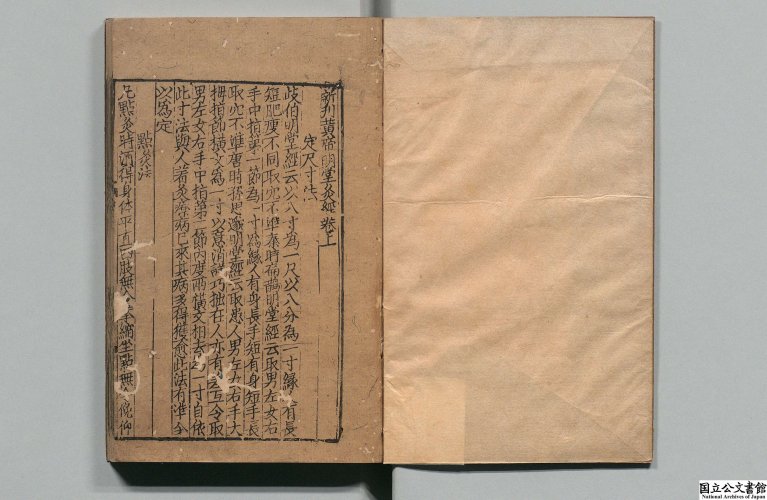 新刊黄帝明堂灸經卷上
定尺寸法
岐伯明堂經云以八寸為一尺以八分為一寸緣人有長
短肥瘦不同取穴不準秦時扁鵲明堂經云取男左女右
手中指第一節為一寸為緣人有身長手短有身短手長
取穴不準唐時孫思邈明堂經云取患人男左女右手大
拇指節橫文為一寸以意消詳巧拙在人亦有
男左女右手中指第二節內度兩橫文相去為一寸自依
此寸法與人著灸療病已來其病多得獲愈此法有準今
以為定
點灸法
凡點灸時須得身體平直四肢無令拳縮坐點無令俛仰
国立公文書館
National Archives of Japan